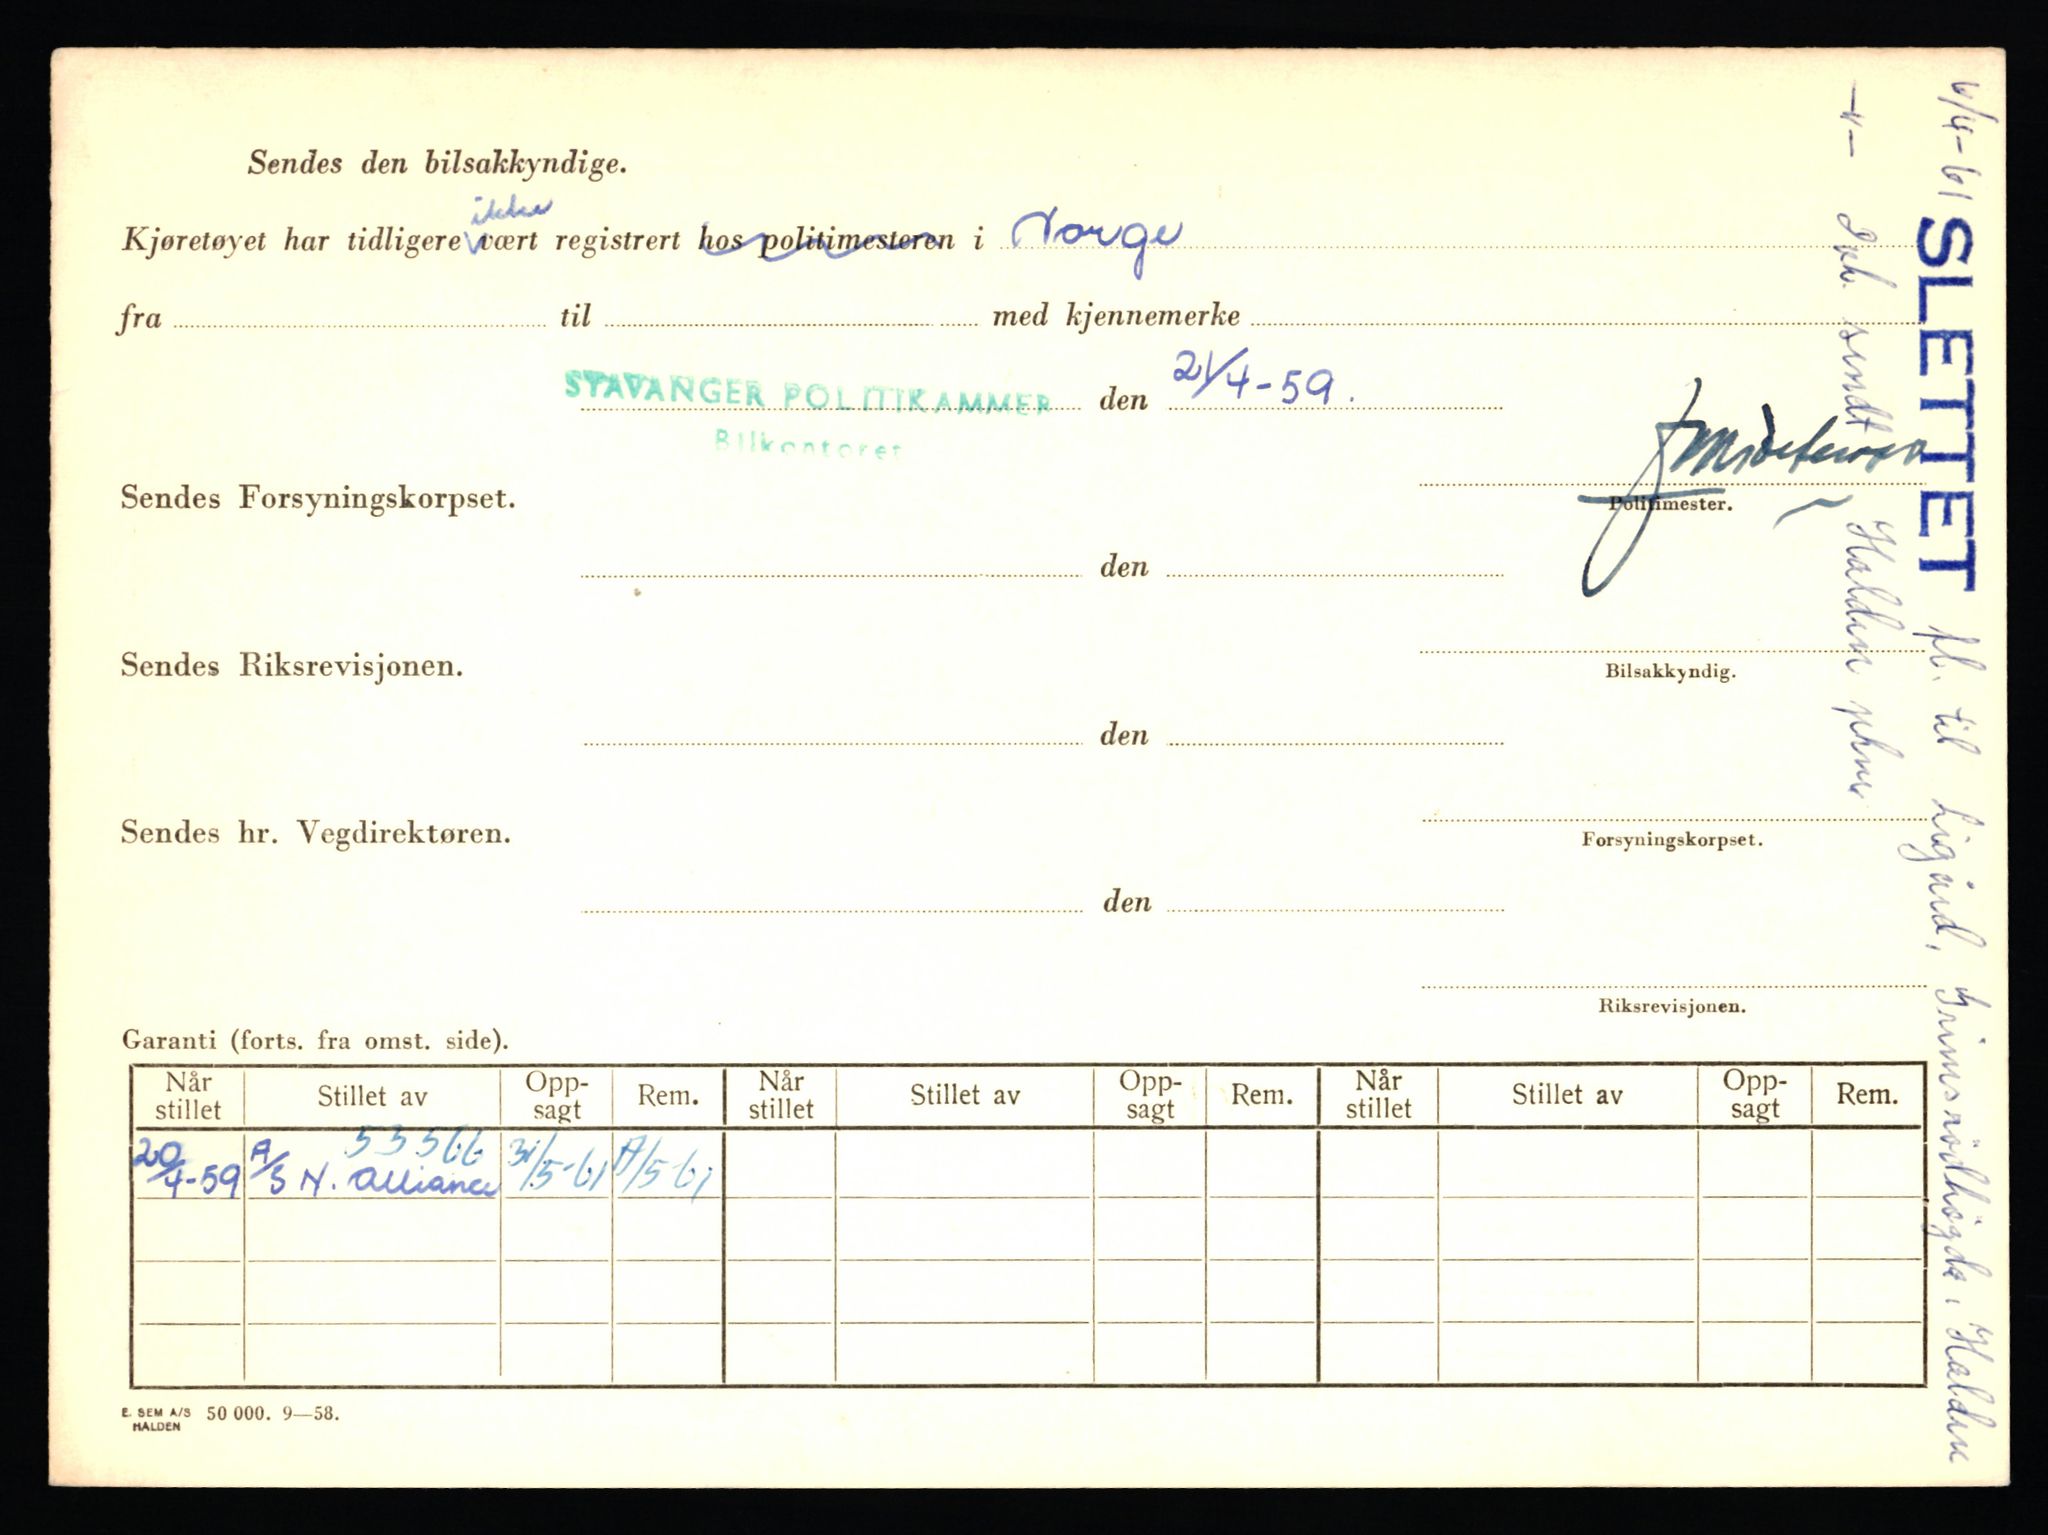 Sendes den bilsakkyndige.
ikke
Kjøretøyet har tidligere vært registrert hos politimesteren i Norge
fra til med kjennemerke
STAVANGER POLITIKAMMER den 21/4-59.
Bilkontoret
Sendes Forsyningskorpset.
Politimester.
den
Sendes Riksrevisjonen.
Bilsakkyndig.
den
Sendes hr. Vegdirektøren.
Forsyningskorpset.
den
Riksrevisjonen.
Garanti (forts. fra omst. side).
Når stillet Stillet av Oppsagt Rem. Når stillet Stillet av Oppsagt Rem. Når stillet Stillet av Oppsagt Rem.
53566
20/4-59 A/S N. Alliance 31/5-61 /5-61
E. SEM A/S HALDEN 50 000. 9—58.
6/4-61 SLETTET fl. til Ligård, Halden
–"– sendt Halden